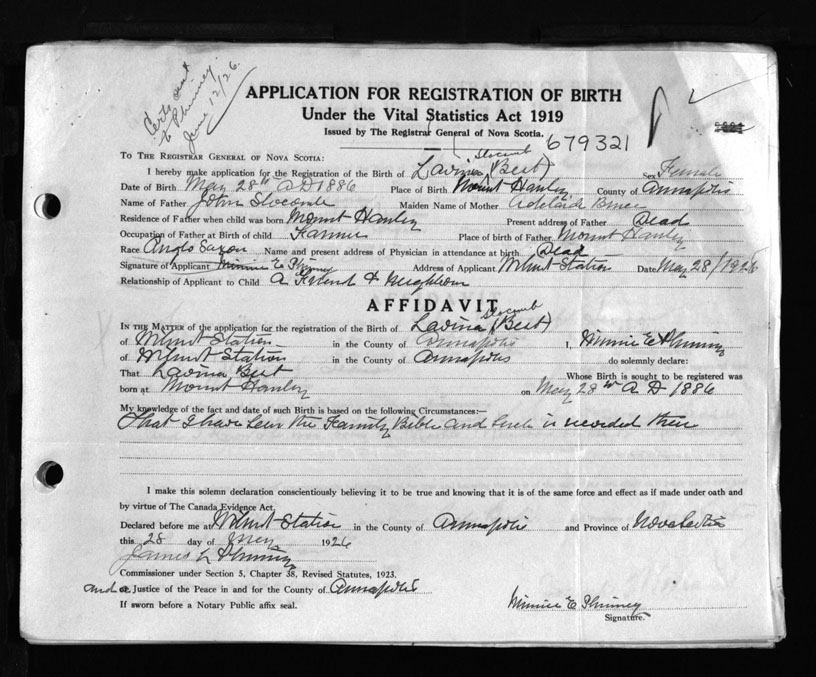 Certs sent
to Phinney.
June 12/26.
APPLICATION FOR REGISTRATION OF BIRTH
Under the Vital Statistics Act 1919
Issued by The Registrar General of Nova Scotia.
679321
TO THE REGISTRAR GENERAL OF NOVA SCOTIA:
Slocomb
I hereby make application for the Registration of the Birth of Lavinia (Bert) Sex Female
Date of Birth May 28th A D 1886 Place of Birth Mount Hanley County of Annapolis
Name of Father John Slocomb Maiden Name of Mother Adelaide Bruce
Residence of Father when child was born Mount Hanley Present address of Father Dead
Occupation of Father at Birth of child Farmer Place of birth of Father Mount Hanley
Race Anglo Saxon Name and present address of Physician in attendance at birth Dead
Signature of Applicant Minnie E Phinney Address of Applicant Wilmot Station Date May 28/1926
Relationship of Applicant to Child A Friend & Neighbour
AFFIDAVIT
Slocomb
IN THE MATTER of the application for the registration of the Birth of Lavina (Bert)
of Wilmot Station in the County of Annapolis I, Minnie E Phinney
of Wilmot Station in the County of Annapolis do solemnly declare:
That Lavinia Bert Whose Birth is sought to be registered was
born at Mount Hanley on May 28th A D 1886
My knowledge of the fact and date of such Birth is based on the following Circumstances:—
That I have seen the Family Bible and such is recorded there
I make this solemn declaration conscientiously believing it to be true and knowing that it is of the same force and effect as if made under oath and
by virtue of The Canada Evidence Act.
Declared before me at Wilmot Station in the County of Annapolis and Province of Nova Scotia
this 28 day of May 1926
James L Phinney
Commissioner under Section 5, Chapter 38, Revised Statutes, 1923.
and a Justice of the Peace in and for the County of Annapolis
If sworn before a Notary Public affix seal.
Minnie E Phinney
Signature.